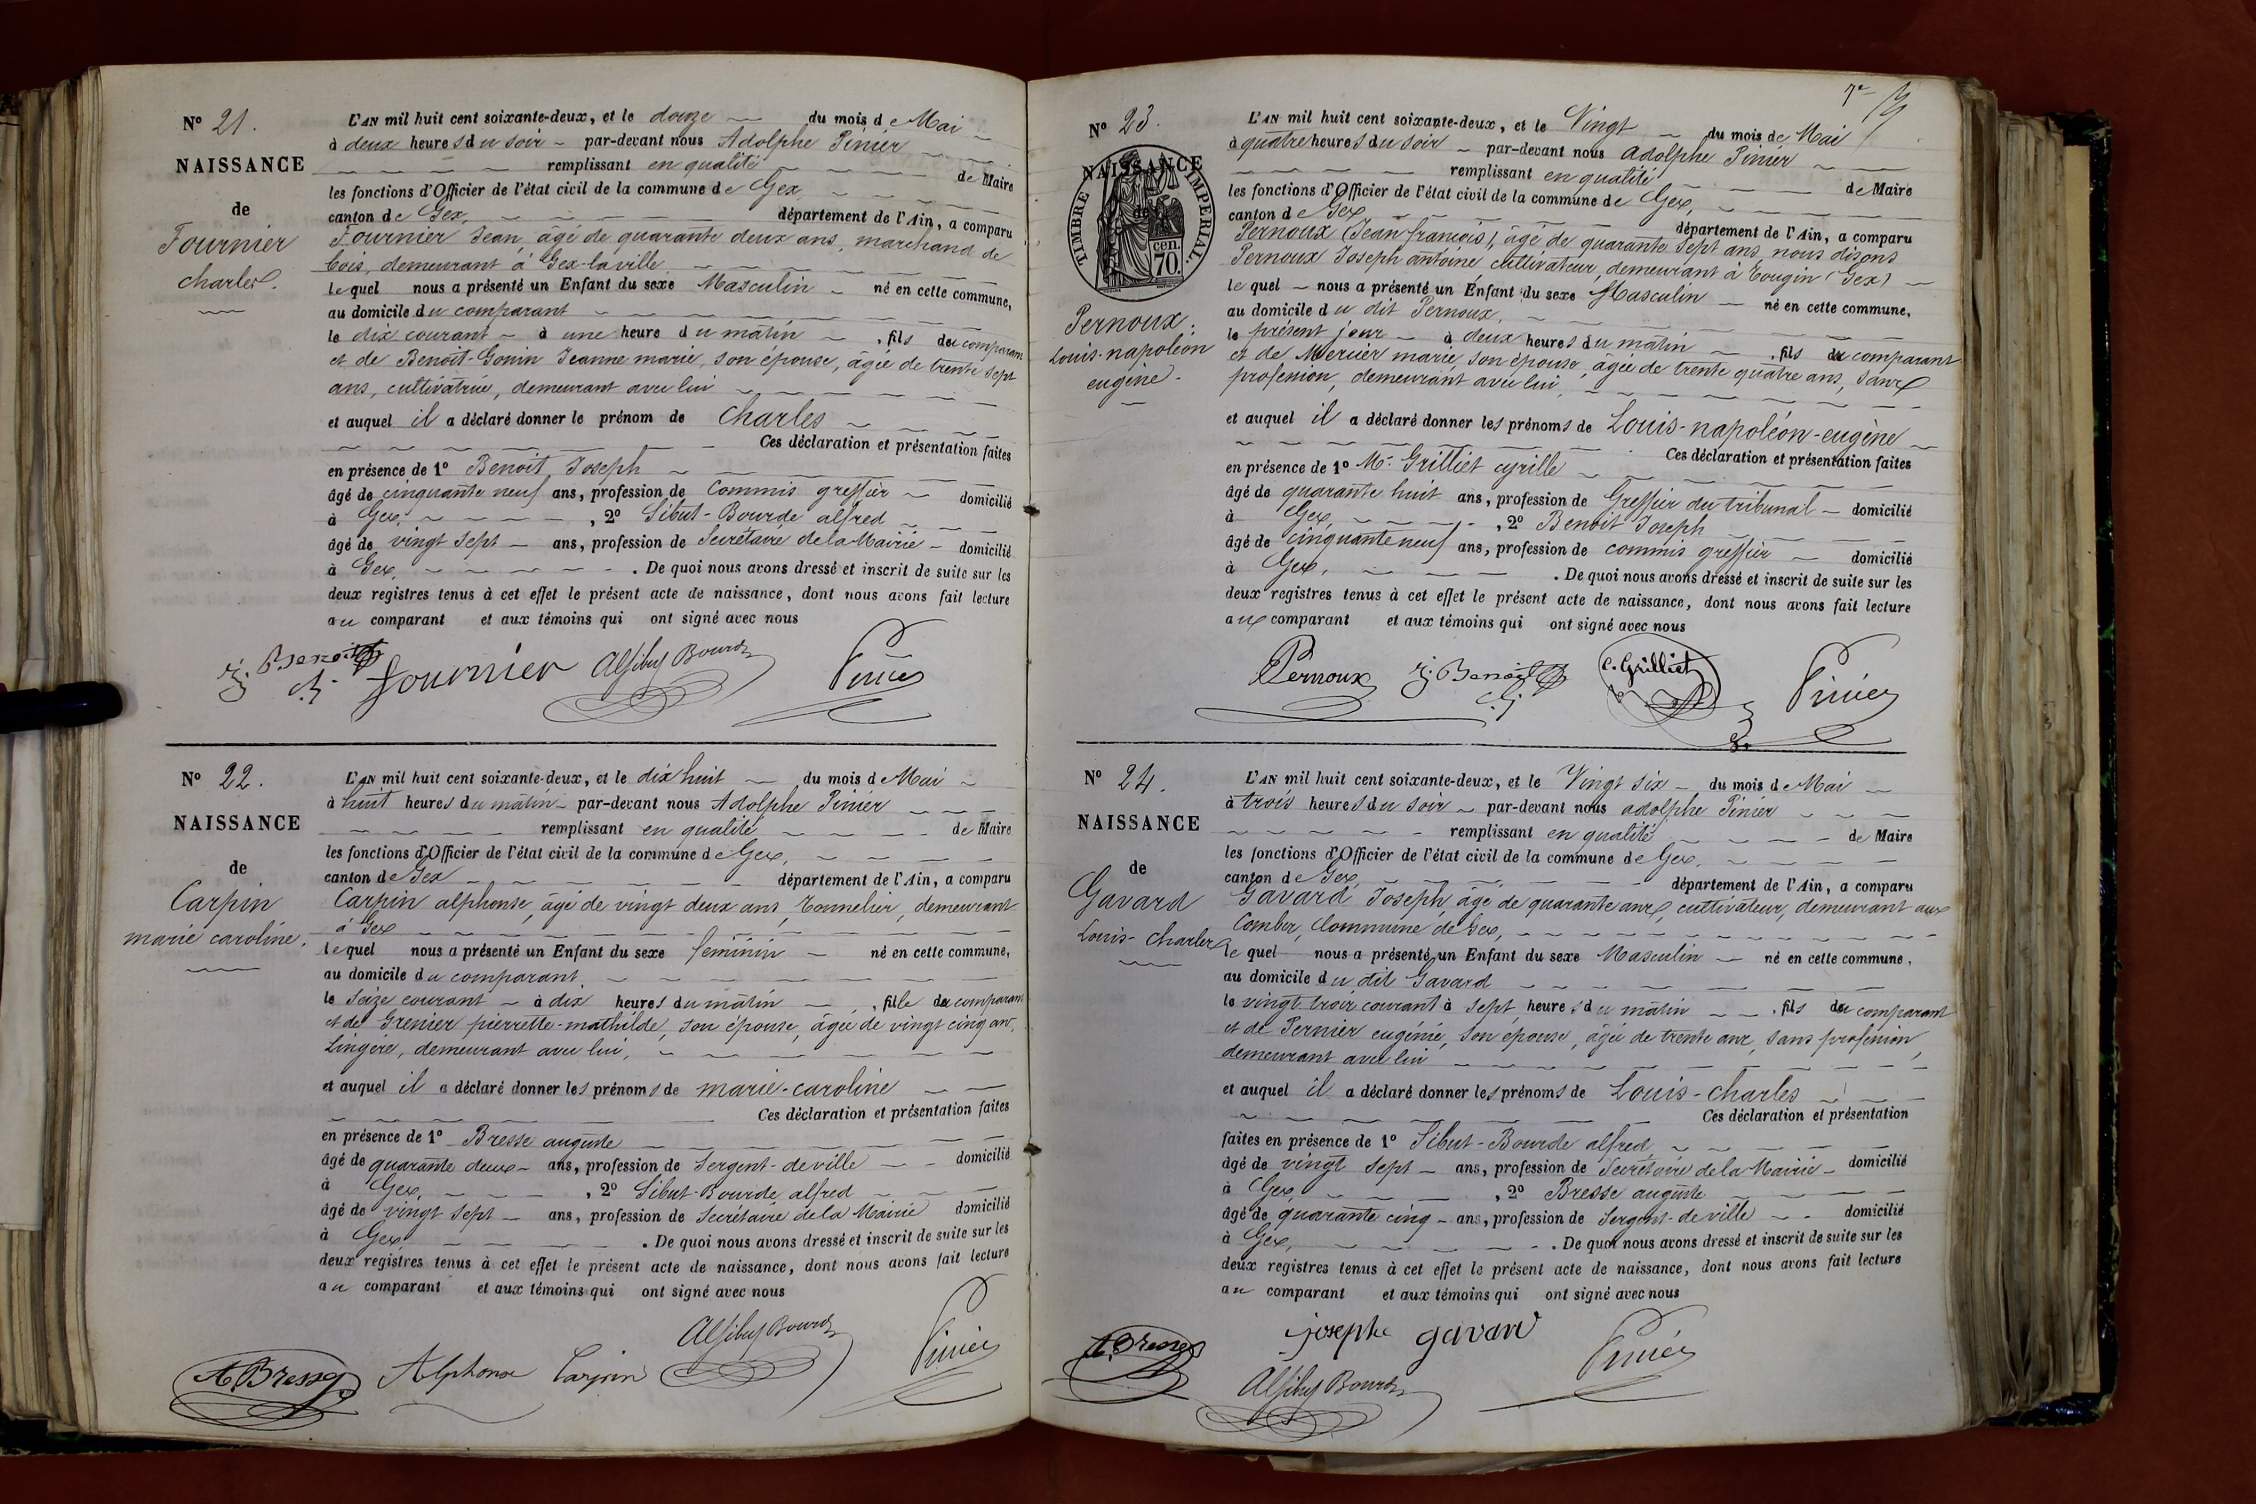 N° 21.
NAISSANCE
de
Fournier
charles.
L'AN mil huit cent soixante-deux, et le douze du mois de Mai
à deux heures du soir par-devant nous Adolphe Pinier
remplissant en qualité de Maire
les fonctions d'Officier de l'état civil de la commune de Gex,
canton de Gex, département de l'Ain, a comparu
Fournier Jean, âgé de quarante deux ans, marchand de
bois, demeurant à Gex-la-ville
lequel nous a présenté un Enfant du sexe Masculin né en cette commune,
au domicile du comparant
le dix courant à une heure du matin, fils du comparant
et de Benoit-Gonin Jeanne marie, son épouse, âgée de trente sept
ans, cultivatrice, demeurant avec lui
et auquel il a déclaré donner le prénom de Charles
Ces déclaration et présentation faites
en présence de 1° Benoit Joseph
âgé de cinquante neuf ans, profession de Commis greffier domicilié
à Gex, , 2° Sibut-Bourde alfred
âgé de vingt sept ans, profession de Secrétaire de la Mairie domicilié
à Gex, . De quoi nous avons dressé et inscrit de suite sur les
deux registres tenus à cet effet le présent acte de naissance, dont nous avons fait lecture
au comparant et aux témoins qui ont signé avec nous
j. Benoit fournier Alf Sibut Bourde Pinier
c. g.
N° 22.
NAISSANCE
de
Carpin
marie caroline.
L'AN mil huit cent soixante-deux, et le dix huit du mois de Mai
à huit heures du matin par-devant nous Adolphe Pinier
remplissant en qualité de Maire
les fonctions d'Officier de l'état civil de la commune de Gex,
canton de Gex département de l'Ain, a comparu
Carpin alphonse, âgé de vingt deux ans, Tonnelier, demeurant
à Gex
lequel nous a présenté un Enfant du sexe féminin né en cette commune,
au domicile du comparant,
le Seize courant à dix heures du matin, fille du comparant
et de Grenier pierrette-mathilde, son épouse, âgée de vingt cinq ans,
Lingère, demeurant avec lui,
et auquel il a déclaré donner les prénoms de marie-caroline
Ces déclaration et présentation faites
en présence de 1° Bresse auguste
âgé de quarante deux ans, profession de Sergent-de ville domicilié
à Gex, , 2° Sibut-Bourde alfred
âgé de vingt sept ans, profession de Secrétaire de la Mairie domicilié
à Gex . De quoi nous avons dressé et inscrit de suite sur les
deux registres tenus à cet effet le présent acte de naissance, dont nous avons fait lecture
au comparant et aux témoins qui ont signé avec nous
A Bresse Alphonse Carpin Alf Sibut Bourde Pinier
7e
N° 23.
NAISSANCE
de
TIMBRE IMPERIAL.
cen.
70.
Pernoux:
Louis-napoléon
eugène.
L'AN mil huit cent soixante-deux, et le Vingt du mois de Mai
à quatre heures du soir par-devant nous adolphe Pinier
remplissant en qualité de Maire
les fonctions d'Officier de l'état civil de la commune de Gex,
canton de Gex département de l'Ain, a comparu
Pernoux (Jean françois), âgé de quarante sept ans, nous disons
Pernoux Joseph antoine cultivateur, demeurant à Tougin (Gex)
lequel nous a présenté un Enfant du sexe Masculin né en cette commune,
au domicile du dit Pernoux,
le présent jour à deux heures du matin, fils du comparant
et de Mercier marie son épouse, âgée de trente quatre ans, sans
profession, demeurant avec lui,
et auquel il a déclaré donner les prénoms de Louis-napoléon-eugène
Ces déclaration et présentation faites
en présence de 1° Mr. Grilliet cyrille
âgé de quarante huit ans, profession de Greffier du tribunal domicilié
à Gex, , 2° Benoit Joseph
âgé de cinquante neuf ans, profession de commis greffier domicilié
à Gex, . De quoi nous avons dressé et inscrit de suite sur les
deux registres tenus à cet effet le présent acte de naissance, dont nous avons fait lecture
aux comparant et aux témoins qui ont signé avec nous
Pernoux j. Benoit C. Grilliet Pinier
c. g.
N° 24.
NAISSANCE
de
Gavard
Louis-Charles
L'AN mil huit cent soixante-deux, et le Vingt six du mois de Mai
à trois heures du soir par-devant nous adolphe Pinier
remplissant en qualité de Maire
les fonctions d'Officier de l'état civil de la commune de Gex,
canton de Gex département de l'Ain, a comparu
Gavard Joseph, âgé de quarante ans, cultivateur, demeurant aux
Combes, Commune de Gex,
lequel nous a présenté un Enfant du sexe Masculin né en cette commune,
au domicile du dit Gavard
le vingt trois courant à sept heures du matin, fils du comparant
et de Pernier eugénie, son épouse, âgée de trente ans, sans profession,
demeurant avec lui
et auquel il a déclaré donner les prénoms de Louis-charles
Ces déclaration et présentation
faites en présence de 1° Sibut-Bourde alfred
âgé de vingt sept ans, profession de Secrétaire de la Mairie domicilié
à Gex, , 2° Bresse auguste
âgé de quarante cinq ans, profession de Sergent-de ville domicilié
à Gex, . De quoi nous avons dressé et inscrit de suite sur les
deux registres tenus à cet effet le présent acte de naissance, dont nous avons fait lecture
au comparant et aux témoins qui ont signé avec nous
A. Bresse josephe gavard Pinier
Alf Sibut Bourde